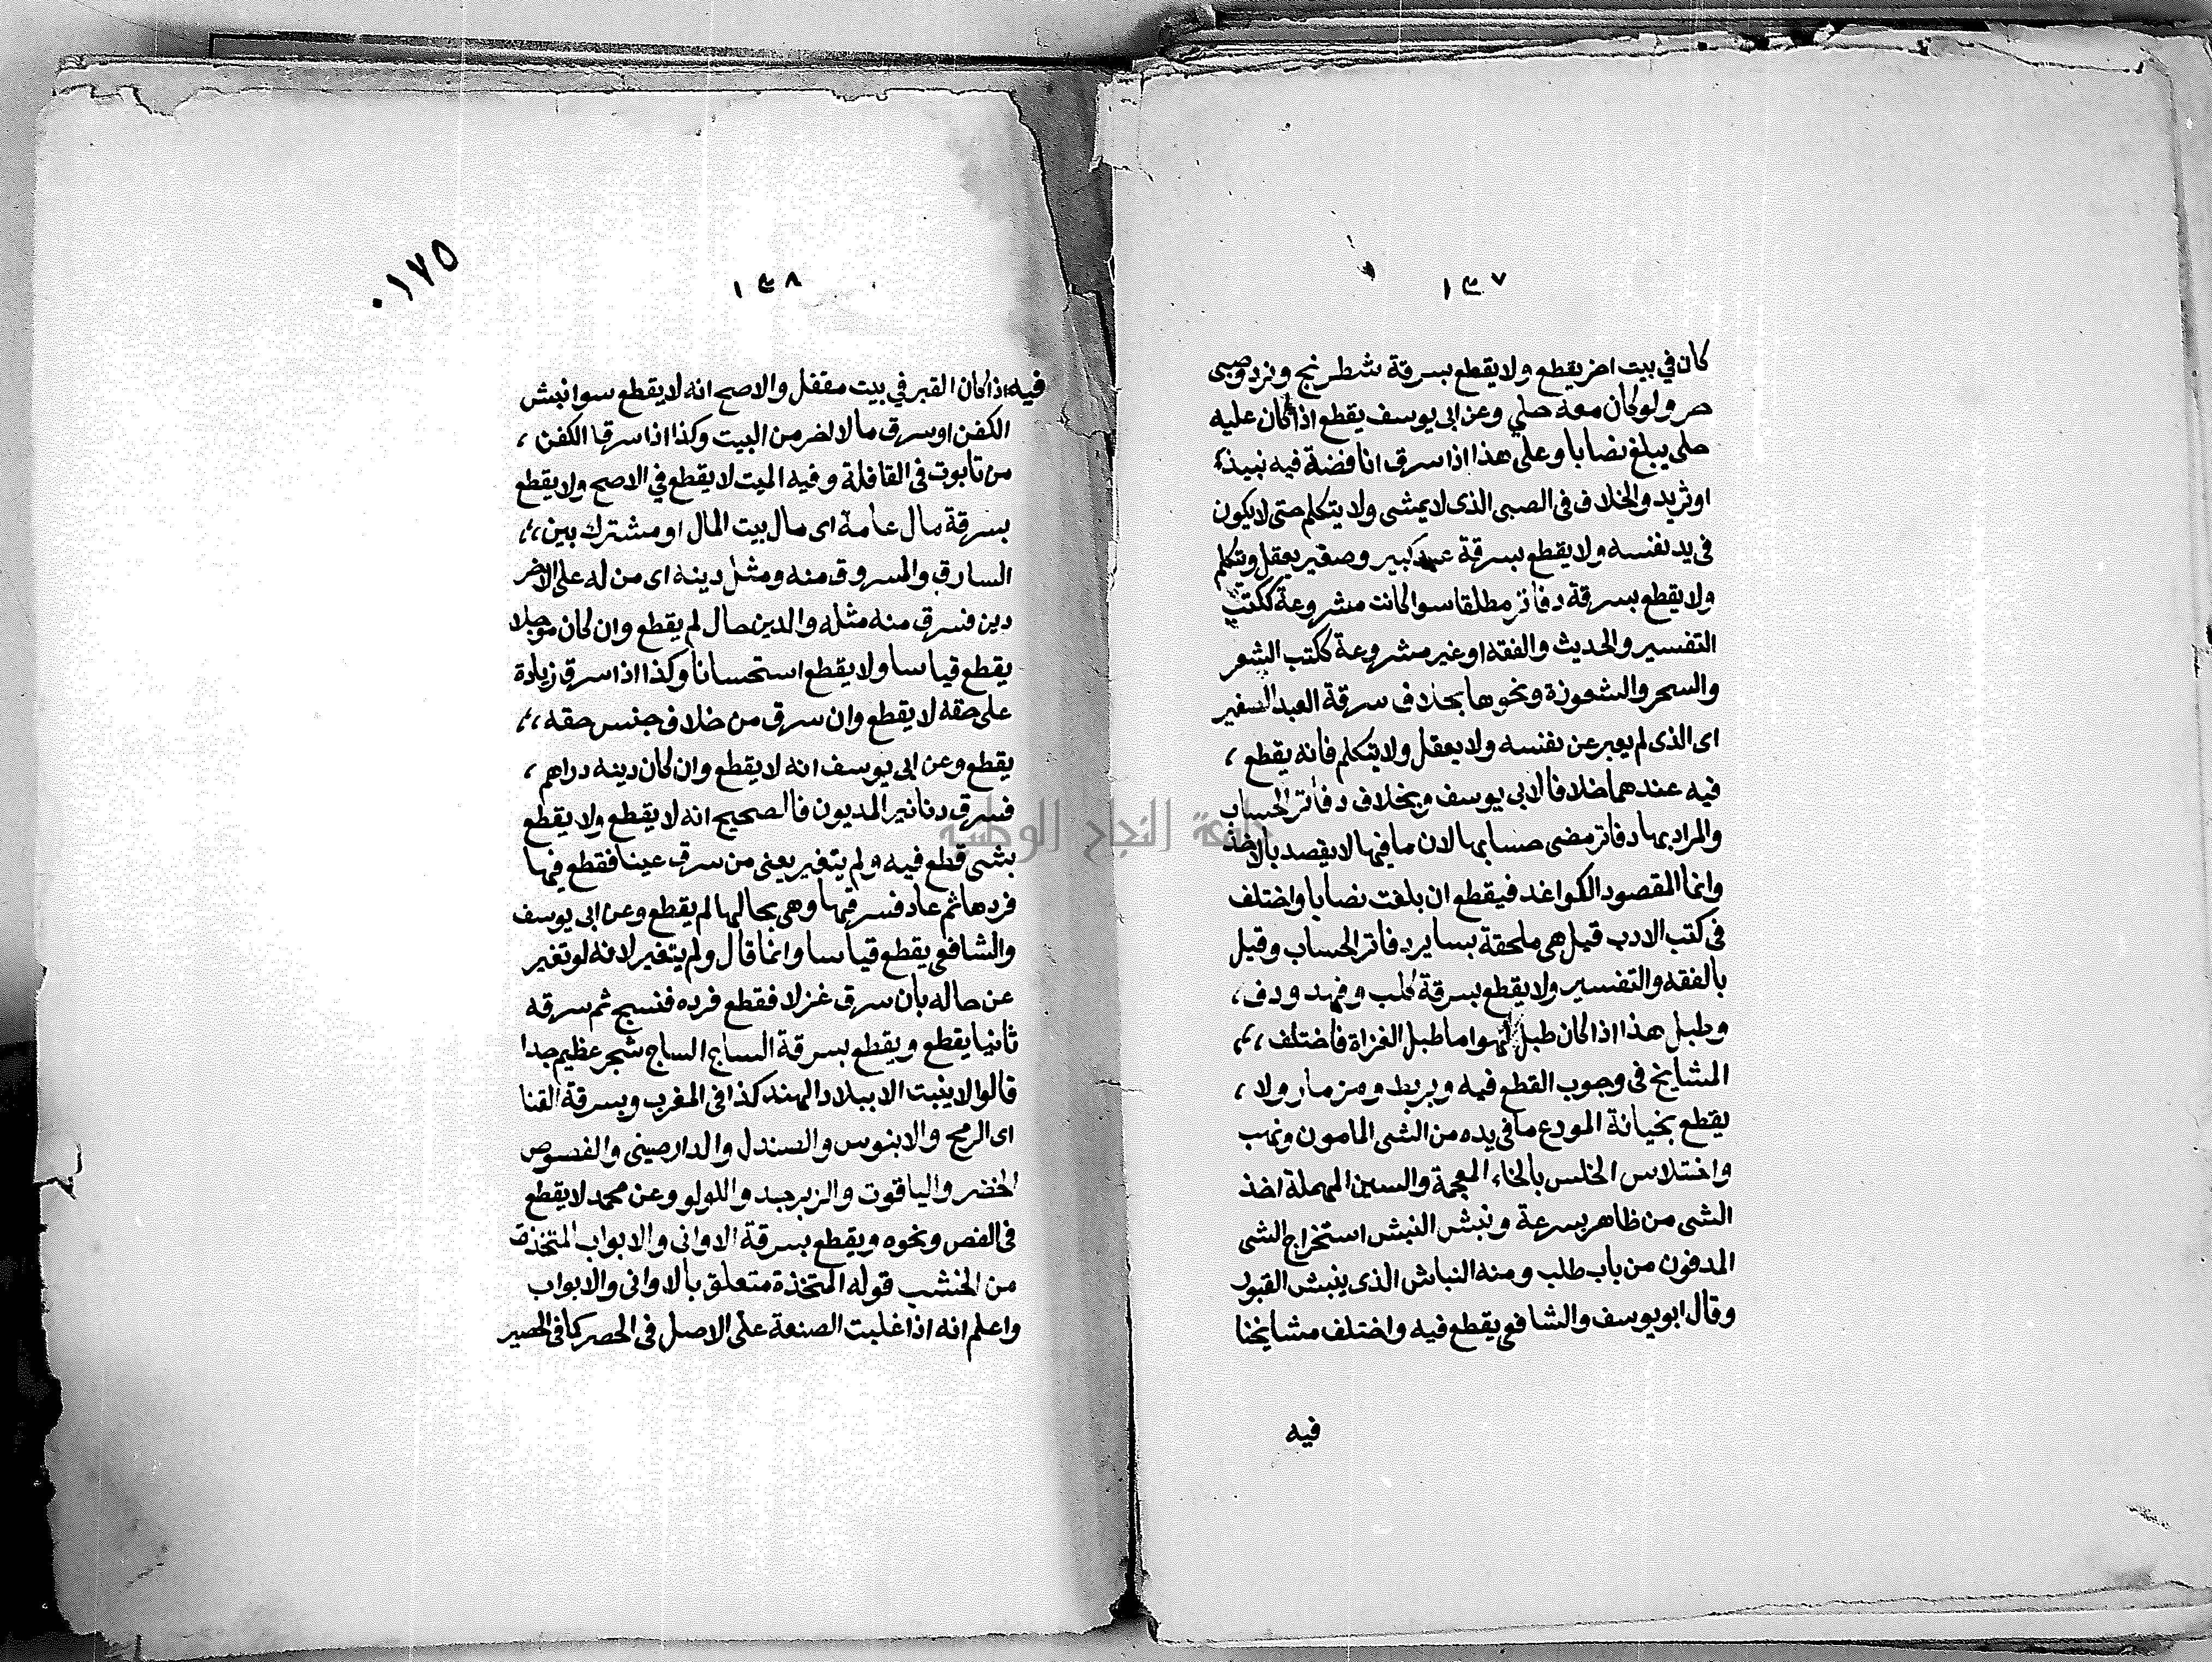 ١٤٧
كان في بيت اخر يقطع ولا يقطع بسرقة شطرنج ونرد وصبى
حر ولو كان معه حلي وعن ابى يوسف يقطع اذا كان عليه
حلى يبلغ نصابا وعلى هذا اذا سرق انا فضة فيه نبيذ
او ثريد والخلاف فى الصبى الذى لا يمشى ولا يتكلم حتى لا يكون
فى يد نفسه ولا يقطع بسرقة عبد كبير وصغير يعقل ويتكلم
ولا يقطع بسرقة دفاتر مطلقا سوا كانت مشروعة ككتب
التفسير والحديث والفقه او غير مشروعة ككتب الشعر
والسحر والشعوزة ونحوها بخلاف سرقة العبد الصغير
اى الذى لم يعبر عن نفسه ولا يعقل ولا يتكلم فانه يقطع ،
فيه عندهما خلافا لابى يوسف وبخلاف دفاتر الحساب
والمراد بها دفاتر مضى حسابها لان ما فيها لا يقصد بالاخذ
وانما المقصود الكواغد فيقطع ان بلغت نصابا واختلف
فى كتب الادب قيل هى ملحقة بساير دفاتر الحساب وقيل
بالفقه والتفسير ولا يقطع بسرقة كلب وفهد ودف ،
وطبل هذا اذا كان طبل لهو اما طبل الغزاة فاختلف ،،
المشايخ فى وجوب القطع فيه وبربط ومزمار ولا ،
يقطع بخيانة المودع ما فى يده من الشى المامون ونهب
واختلاس الخلس بالخاء المعجمة والسين المهملة اخذ
الشى من ظاهر بسرعة ونبش النبش استخراج الشى
المدفون من باب طلب ومنه النباش الذى ينبش القبور
وقال ابو يوسف والشافعى يقطع فيه واختلف مشايخنا
فيه
٠١٧٥
١٤٨
فيه اذا كان القبر في بيت مقفل والاصح انه لا يقطع سوا نبش
الكفن او سرق مالا اخر من البيت وكذا اذا سرقا الكفن ،
من تابوت فى القافلة وفيه الميت لا يقطع في الاصح ولا يقطع
بسرقة مال عامة اى مال بيت المال او مشترك بين ،،
السارق والمسروق منه ومثل دينه اى من له على الاخر
دين فسرق منه مثله والدين حال لم يقطع وان كان موجلا
يقطع قياسا ولا يقطع استحسانا وكذا اذا سرق زيادة
على حقه لا يقطع وان سرق من خلاف جنس حقه ،،
يقطع وعن ابى يوسف انه لا يقطع وان كان دينه دراهم ،
فسرق دنانير المديون فالصحيح انه لا يقطع ولا يقطع
بشى قطع فيه ولم يتغير يعنى من سرق عينا فقطع فيها
فردها ثم عاد فسرقها وهى بحالها لم يقطع وعن ابى يوسف
والشافعى يقطع قياسا وانما قال ولم يتغير لانه لو تغير
عن حاله بان سرق غزلا فقطع فرده فنسج ثم سرقه
ثانيا يقطع ويقطع بسرقة الساج الساج شجر عظيم جدا
قالوا لا ينبت الا ببلاد الهند كذا فى المغرب وبسرقة القنا
اى الرمح والابنوس والصندل والدارصينى والفصوص
الخضر والياقوت والزبرجد واللولو وعن محمد لا يقطع
فى الفص ونحوه ويقطع بسرقة الاوانى والابواب المتخذة
من الخشب قوله المتخذة متعلق بالاوانى والابواب
واعلم انه اذا غلبت الصنعة على الاصل فى الحصر كما فى الحصير
جامعة النجاح الوطنية